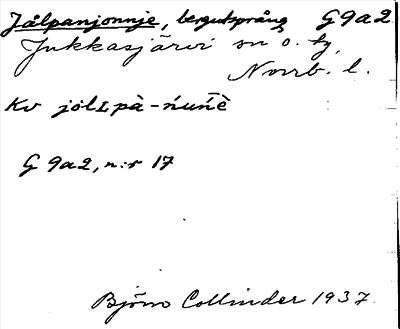 Jålpanjonnje, bergutsprång G9a2
Jukkasjärvi sn o. tg,
Norrb. l.
Kv jölLpà-ńuńè
G 9a2, n:r 17
Björn Collinder 1937